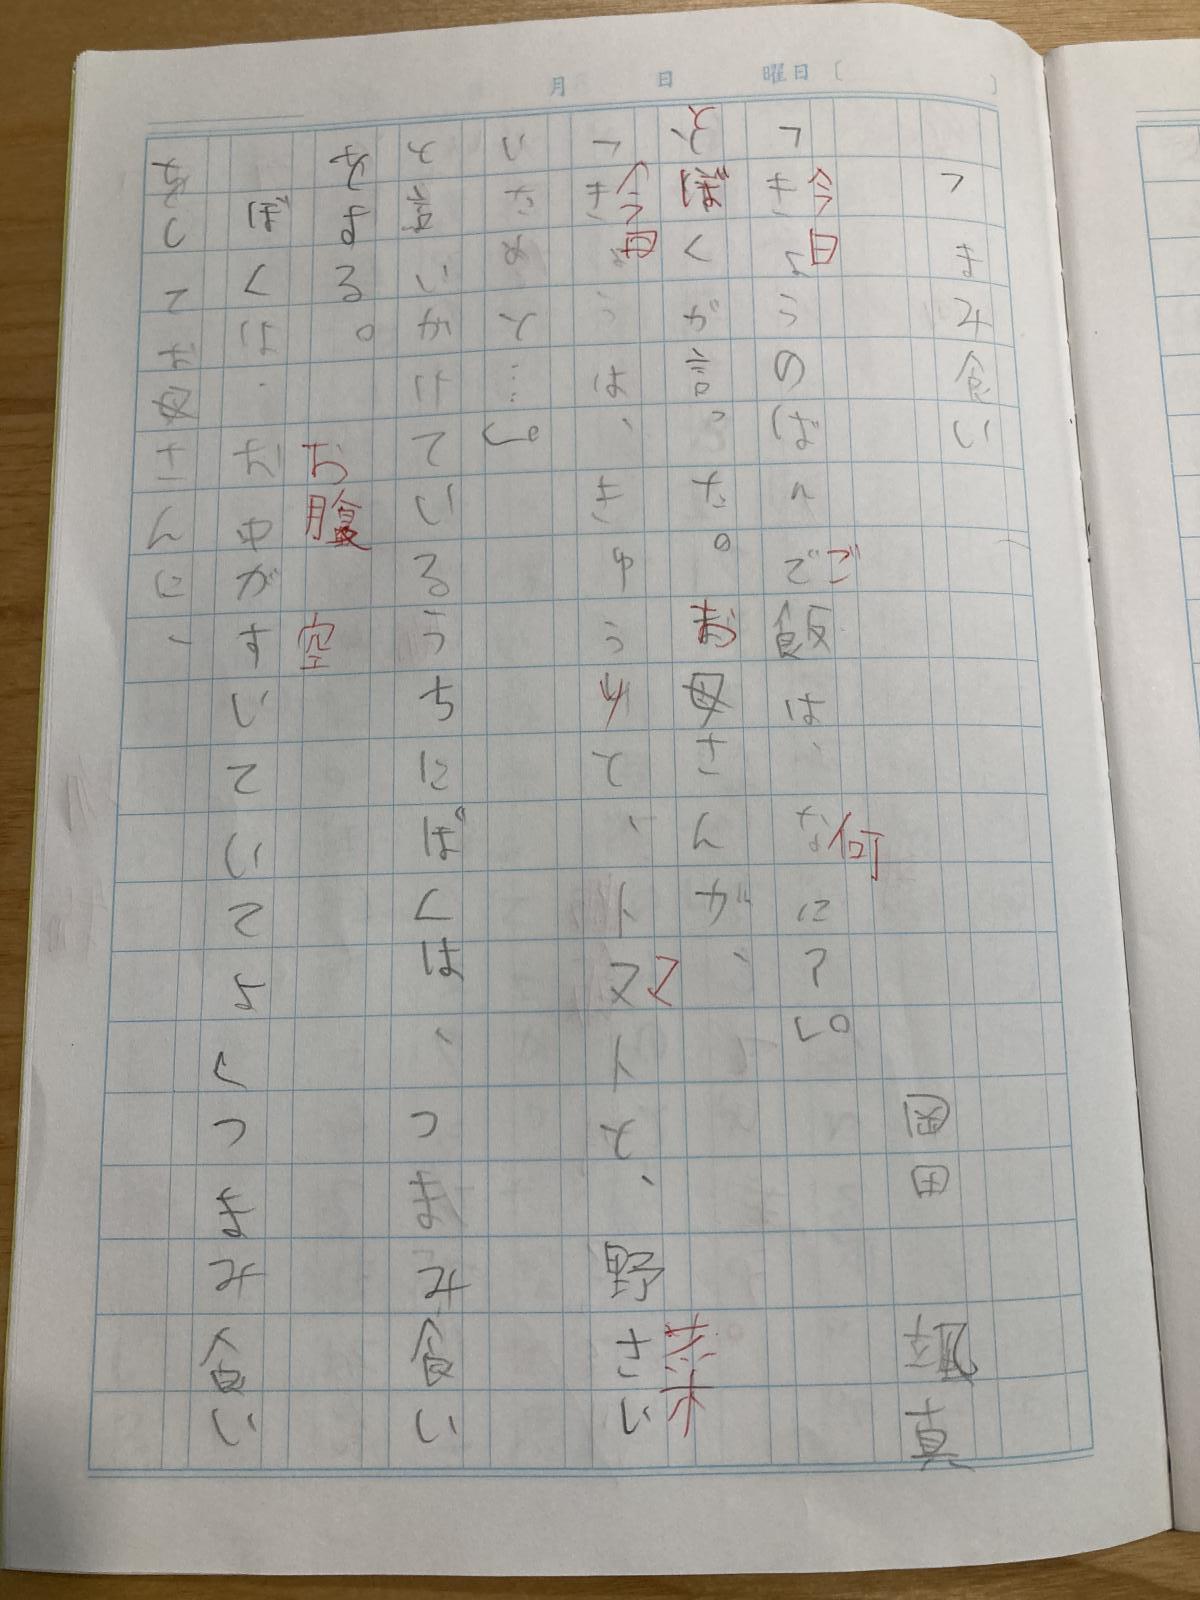 月 日 曜日〔 〕
つまみ食い
岡田 颯真
今日 ご 何
「きょうのばんご飯は、なに?」。
と、ぼくが言った。お母さんが、
今日 マ 菜
「きょうは、きゅうりと、トマトと、野さい
いためと…。」
と言いかけているうちにぼくは、つまみ食い
る。
お腹 空
ぼくは、お中がすいていてよくつまみ食い
をしてお母さんに、